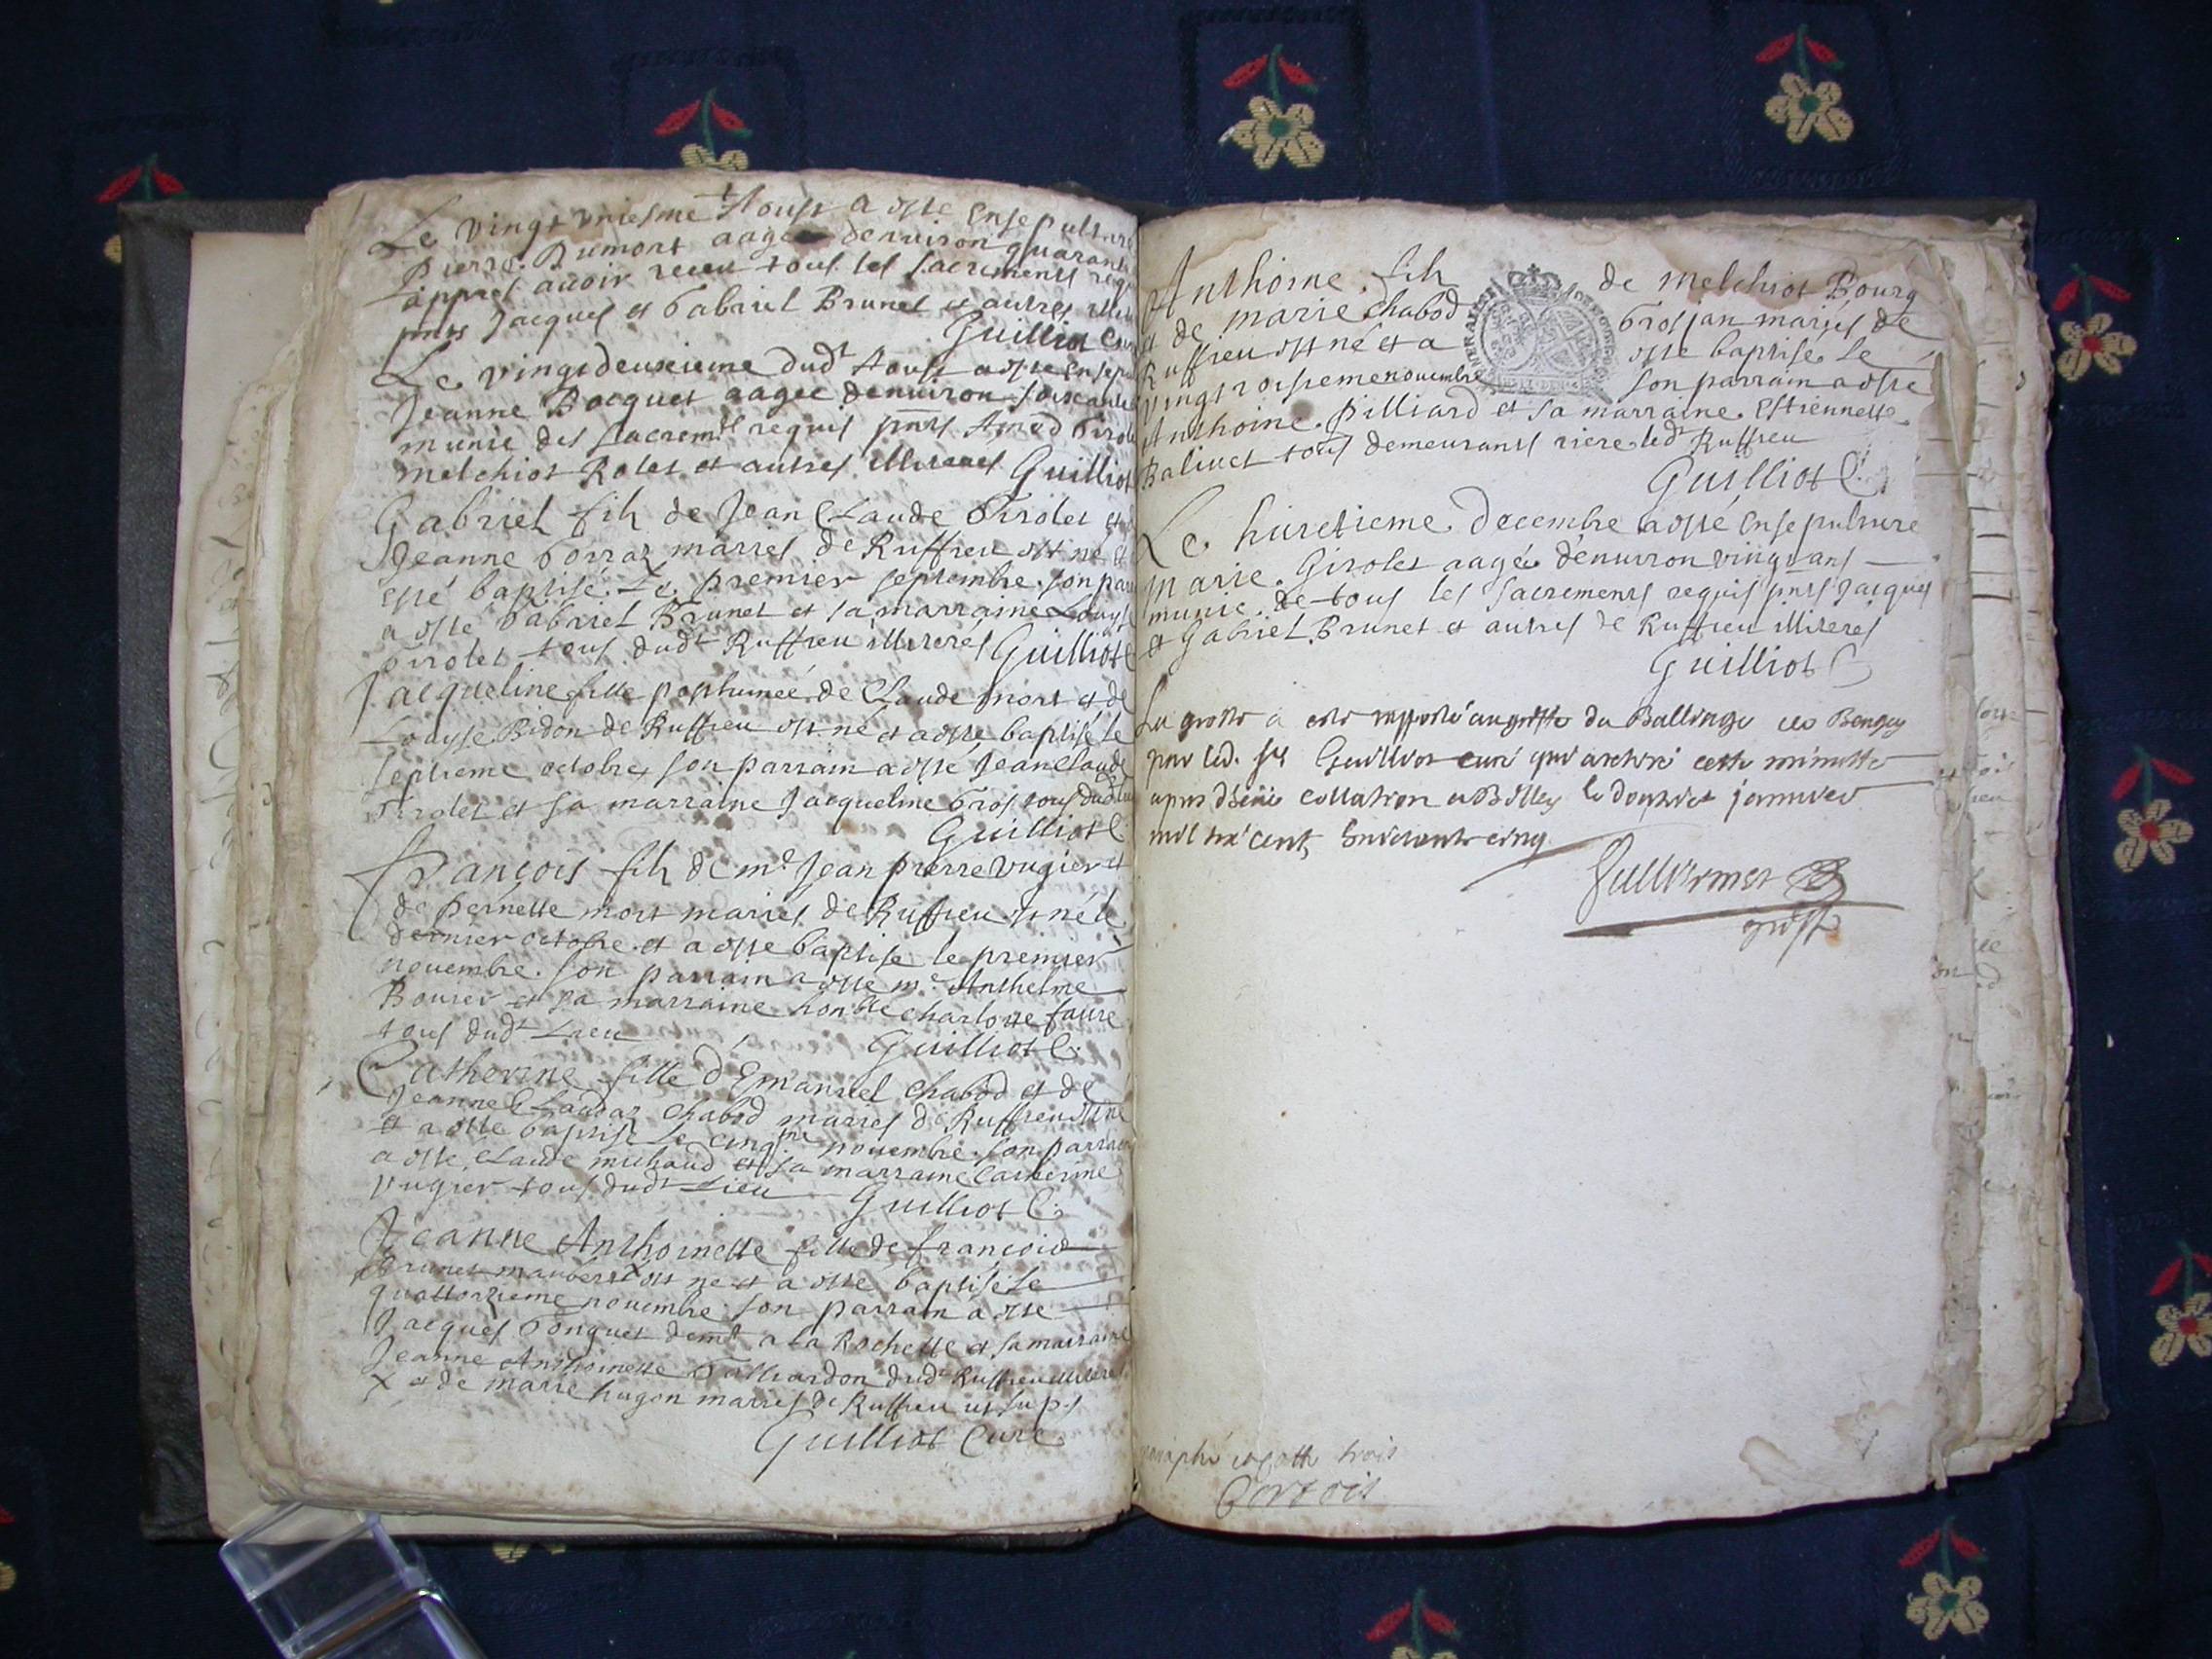 Le vingt vniesme Aoust a esté ensepulturé
Pierre Dumont aagé denuiron quarante
appres auoir receu tous les sacrements req
pnts Jacques et Gabriel Brunet et autres
Guilliot Cur
Le vingtdeuxieme dudt Aoust a esté ensep
Jeanne Bocquet aagee denuiron soixante
munie des sacremts requis pnts Amed Girolet
melchiot Rolet et autres illiteres Guilliot
Gabriel fils de Jean Claude Girolet et
Jeanne Gorraz mariés de Ruffieu est né et
esté baptisé Le premier septembre son par
a esté Gabriel Brunet et sa marraine Louyse
Girolet tous dudt Ruffieu illiteres Guilliot C
Jacqueline fille posthumeé de Claude mort et de
Louyse Bidon de Ruffieu est né et a esté baptisé le
septieme octobre son parrain a esté Jean Claude
Girolet et sa marraine Jacqueline Gros tous dudt
Guilliot C.
François fils de me Jean pierre vugier et
de pernette mort mariés de Ruffieu est né le
dernier octobre et a esté baptisé le premier
nouembre son parrain a esté me Anthelme
Bouuier et sa marraine honble charlotte faure
tous dudt Lieu Guilliot C.
Catherine fille d'Emanuel chabod et de
Jeanne Claudaz chabod mariés de Ruffieu est né
et a esté baptisé Le cinqme nouembre son parrain
a esté Claude michaud et sa marraine Catherine
vugier tous dudt Lieu Guilliot C.
Jeanne Anthoinette fille de françois
Brunet maubert X est né et a esté baptisé le
quattorzieme nouembre son parrain a esté
Jacques Gonguet demt a la Rochette et sa marraine
Jeanne Anthoinette Galliardon dudt Ruffieu illiteres
X et de marie hugon mariés de Ruffieu ut sup.
Guilliot Curé
Anthoine fils de melchiot Bourg
et de marie chabod Grosjan mariés de
Ruffieu est né et a esté baptisé Le
vingtroisieme nouembre son parrain a esté
Anthoine pilliard et sa marraine Estiennette
Baliuet tous demeurants riere ledt Ruffieu
Guilliot C.
Le huictieme decembre a esté ensepulture
marie Girolet aagée denuiron vingt ans
munie de tous les sacrements requis pnts Jacques
et Gabriel Brunet et autres de Ruffieu illiteres
Guilliot C
La grosse a esté apporté au greffe du Balliage de Beugey
par led. sr Guilliot curé qui a retiré cette minutte
apres deüe collation a Belley le douziet januier
mil six cents septante cinq
greff
paraphé et cotté trois
Cortois